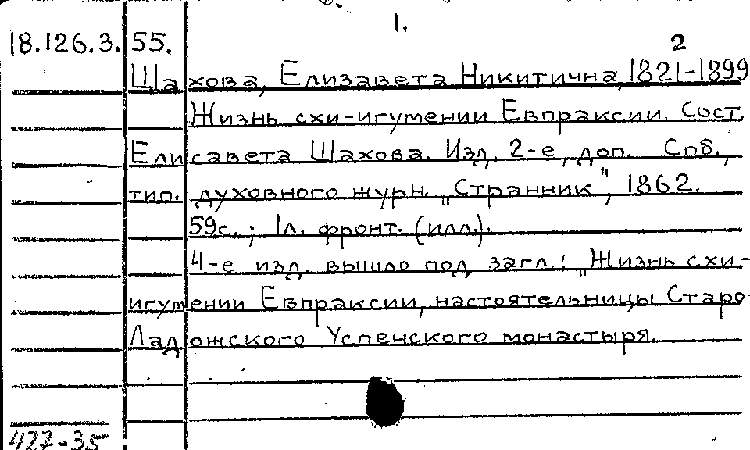 1.
18.126.3.55.
2
Шахова, Елизавета Никитична, 1821-1899
Жизнь схи-игумении Евпраксии. Сост.
Елисавета Шахова. Изд. 2-е, доп. Спб.,
тип. духовного журн. „Странник", 1862.
59с.; 1л. фронт. (илл.).
4-е изд. вышло под загл.: „Жизнь схи-
игумении Евпраксии, настоятельницы Старо
Ладожского Успенского монастыря.
427-35